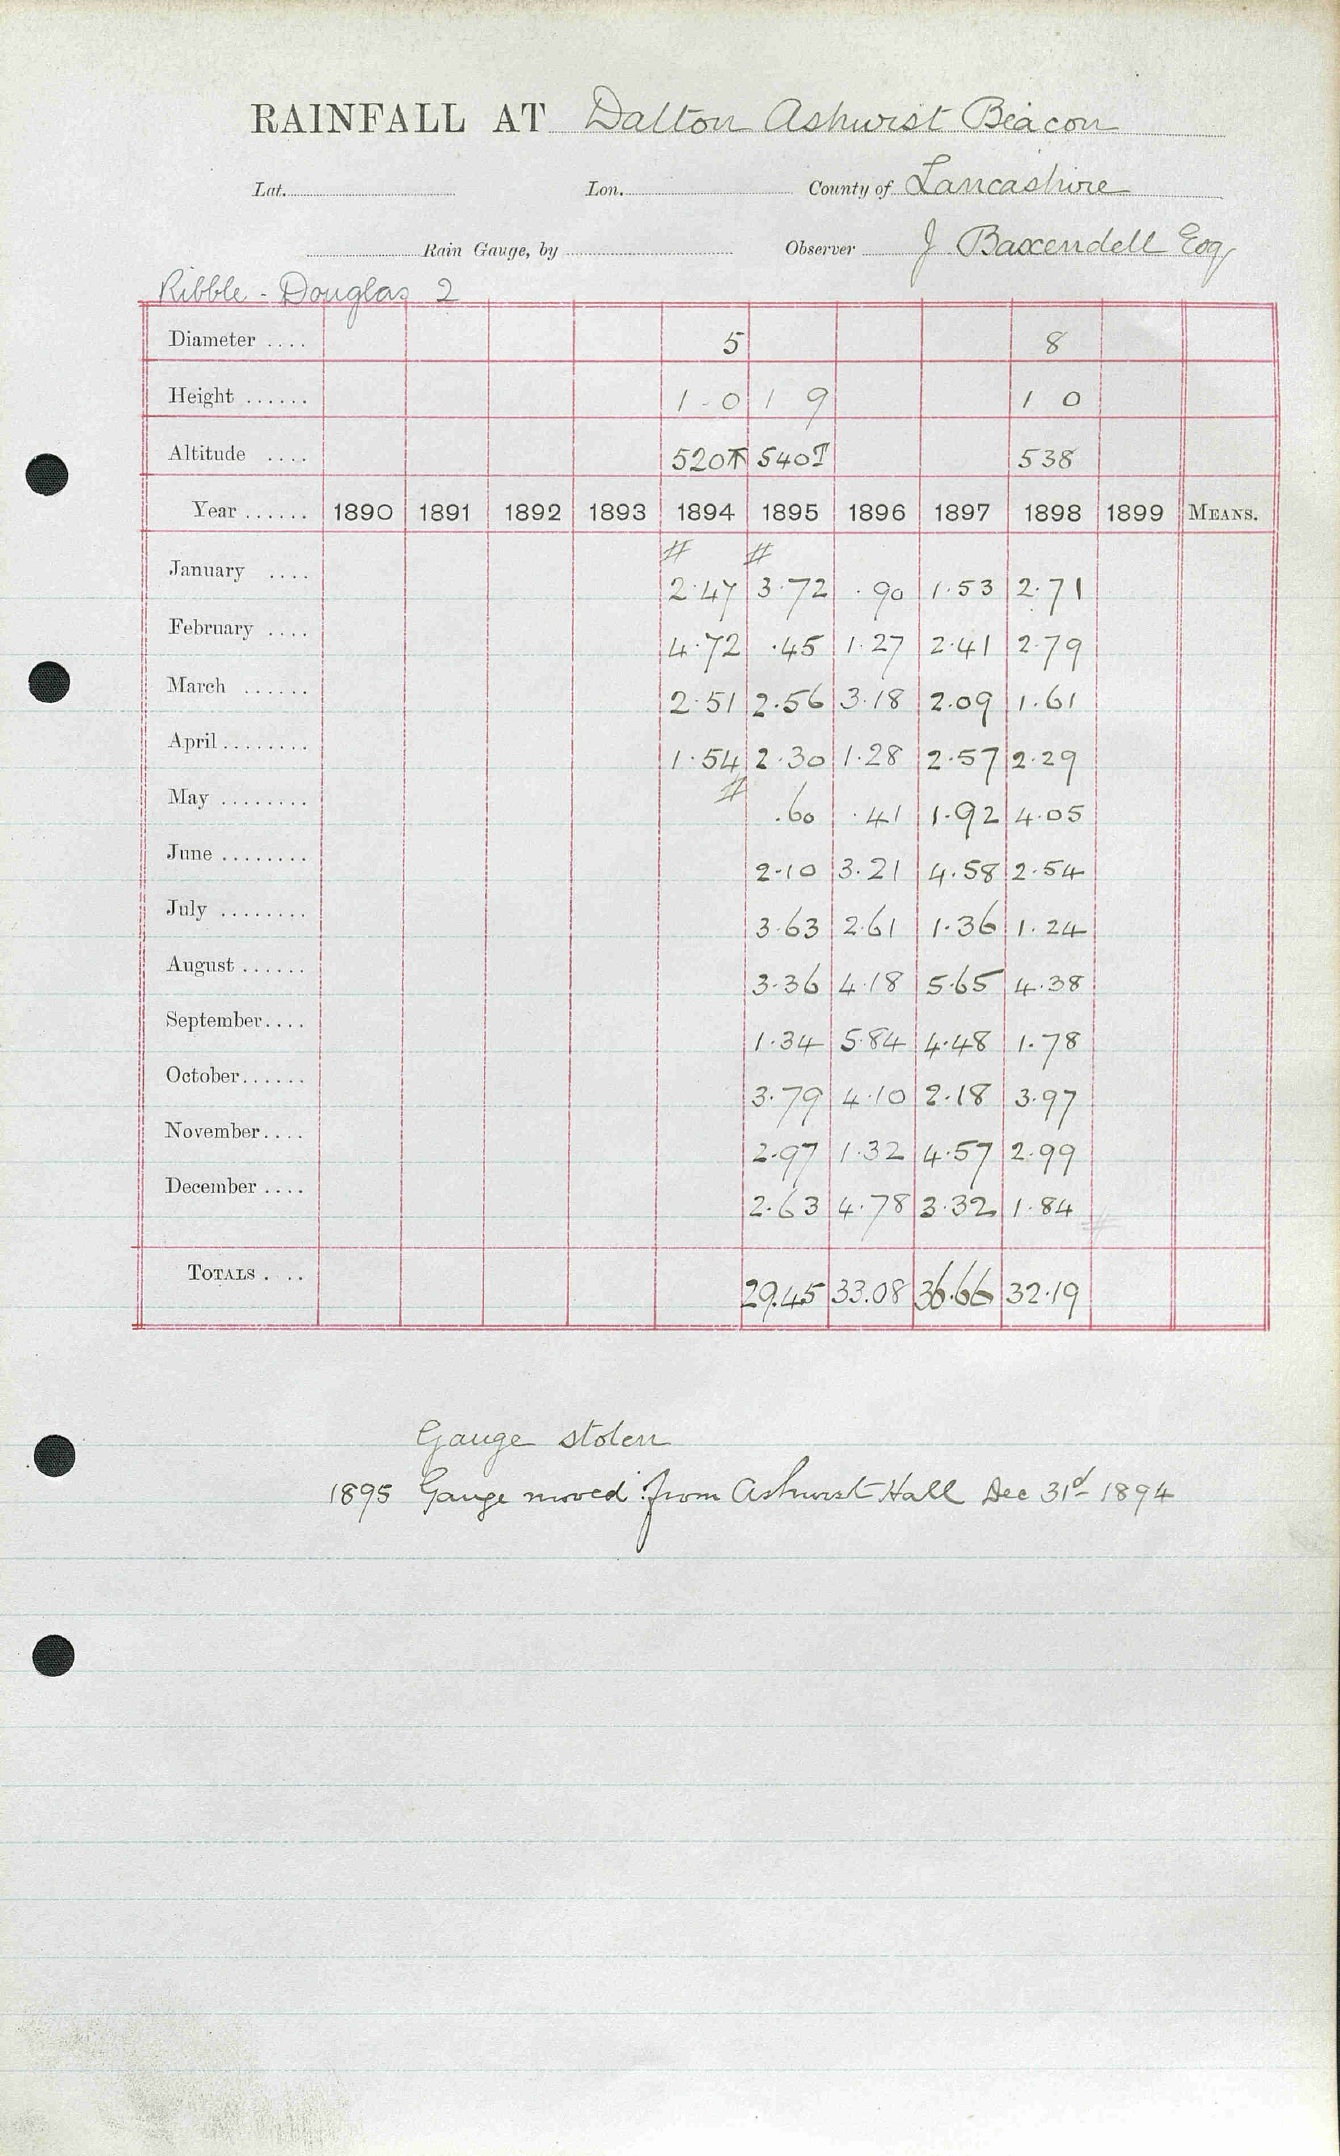 RAINFALL AT Dalton Ashurst Beacon
Lat. Lon. County of Lancashire
Rain Gauge, by Observer J Baxendell Esq
Ribble - Douglas 2
Diameter .... 5 8
Height ...... 1 - 0 1 9 1 0
Altitude .... 520T 540T 538
Year ...... 1890 1891 1892 1893 1894 1895 1896 1897 1898 1899 MEANS.
# #
January .... 2.47 3.72 .90 1.53 2.71
February .... 4.72 .45 1.27 2.41 2.79
March ...... 2.51 2.56 3.18 2.09 1.61
April ........ 1.54 2.30 1.28 2.57 2.29
May ........ # .60 .41 1.92 4.05
June ........ 2.10 3.21 4.58 2.54
July ........ 3.63 2.61 1.36 1.24
August ...... 3.36 4.18 5.65 4.38
September.... 1.34 5.84 4.48 1.78
October...... 3.79 4.10 2.18 3.97
November.... 2.97 1.32 4.57 2.99
December .... 2.63 4.78 3.32 1.84 #
TOTALS . .. 29.45 33.08 36.66 32.19
Gauge stolen
1895 Gauge moved from Ashurst Hall Dec 31st 1894